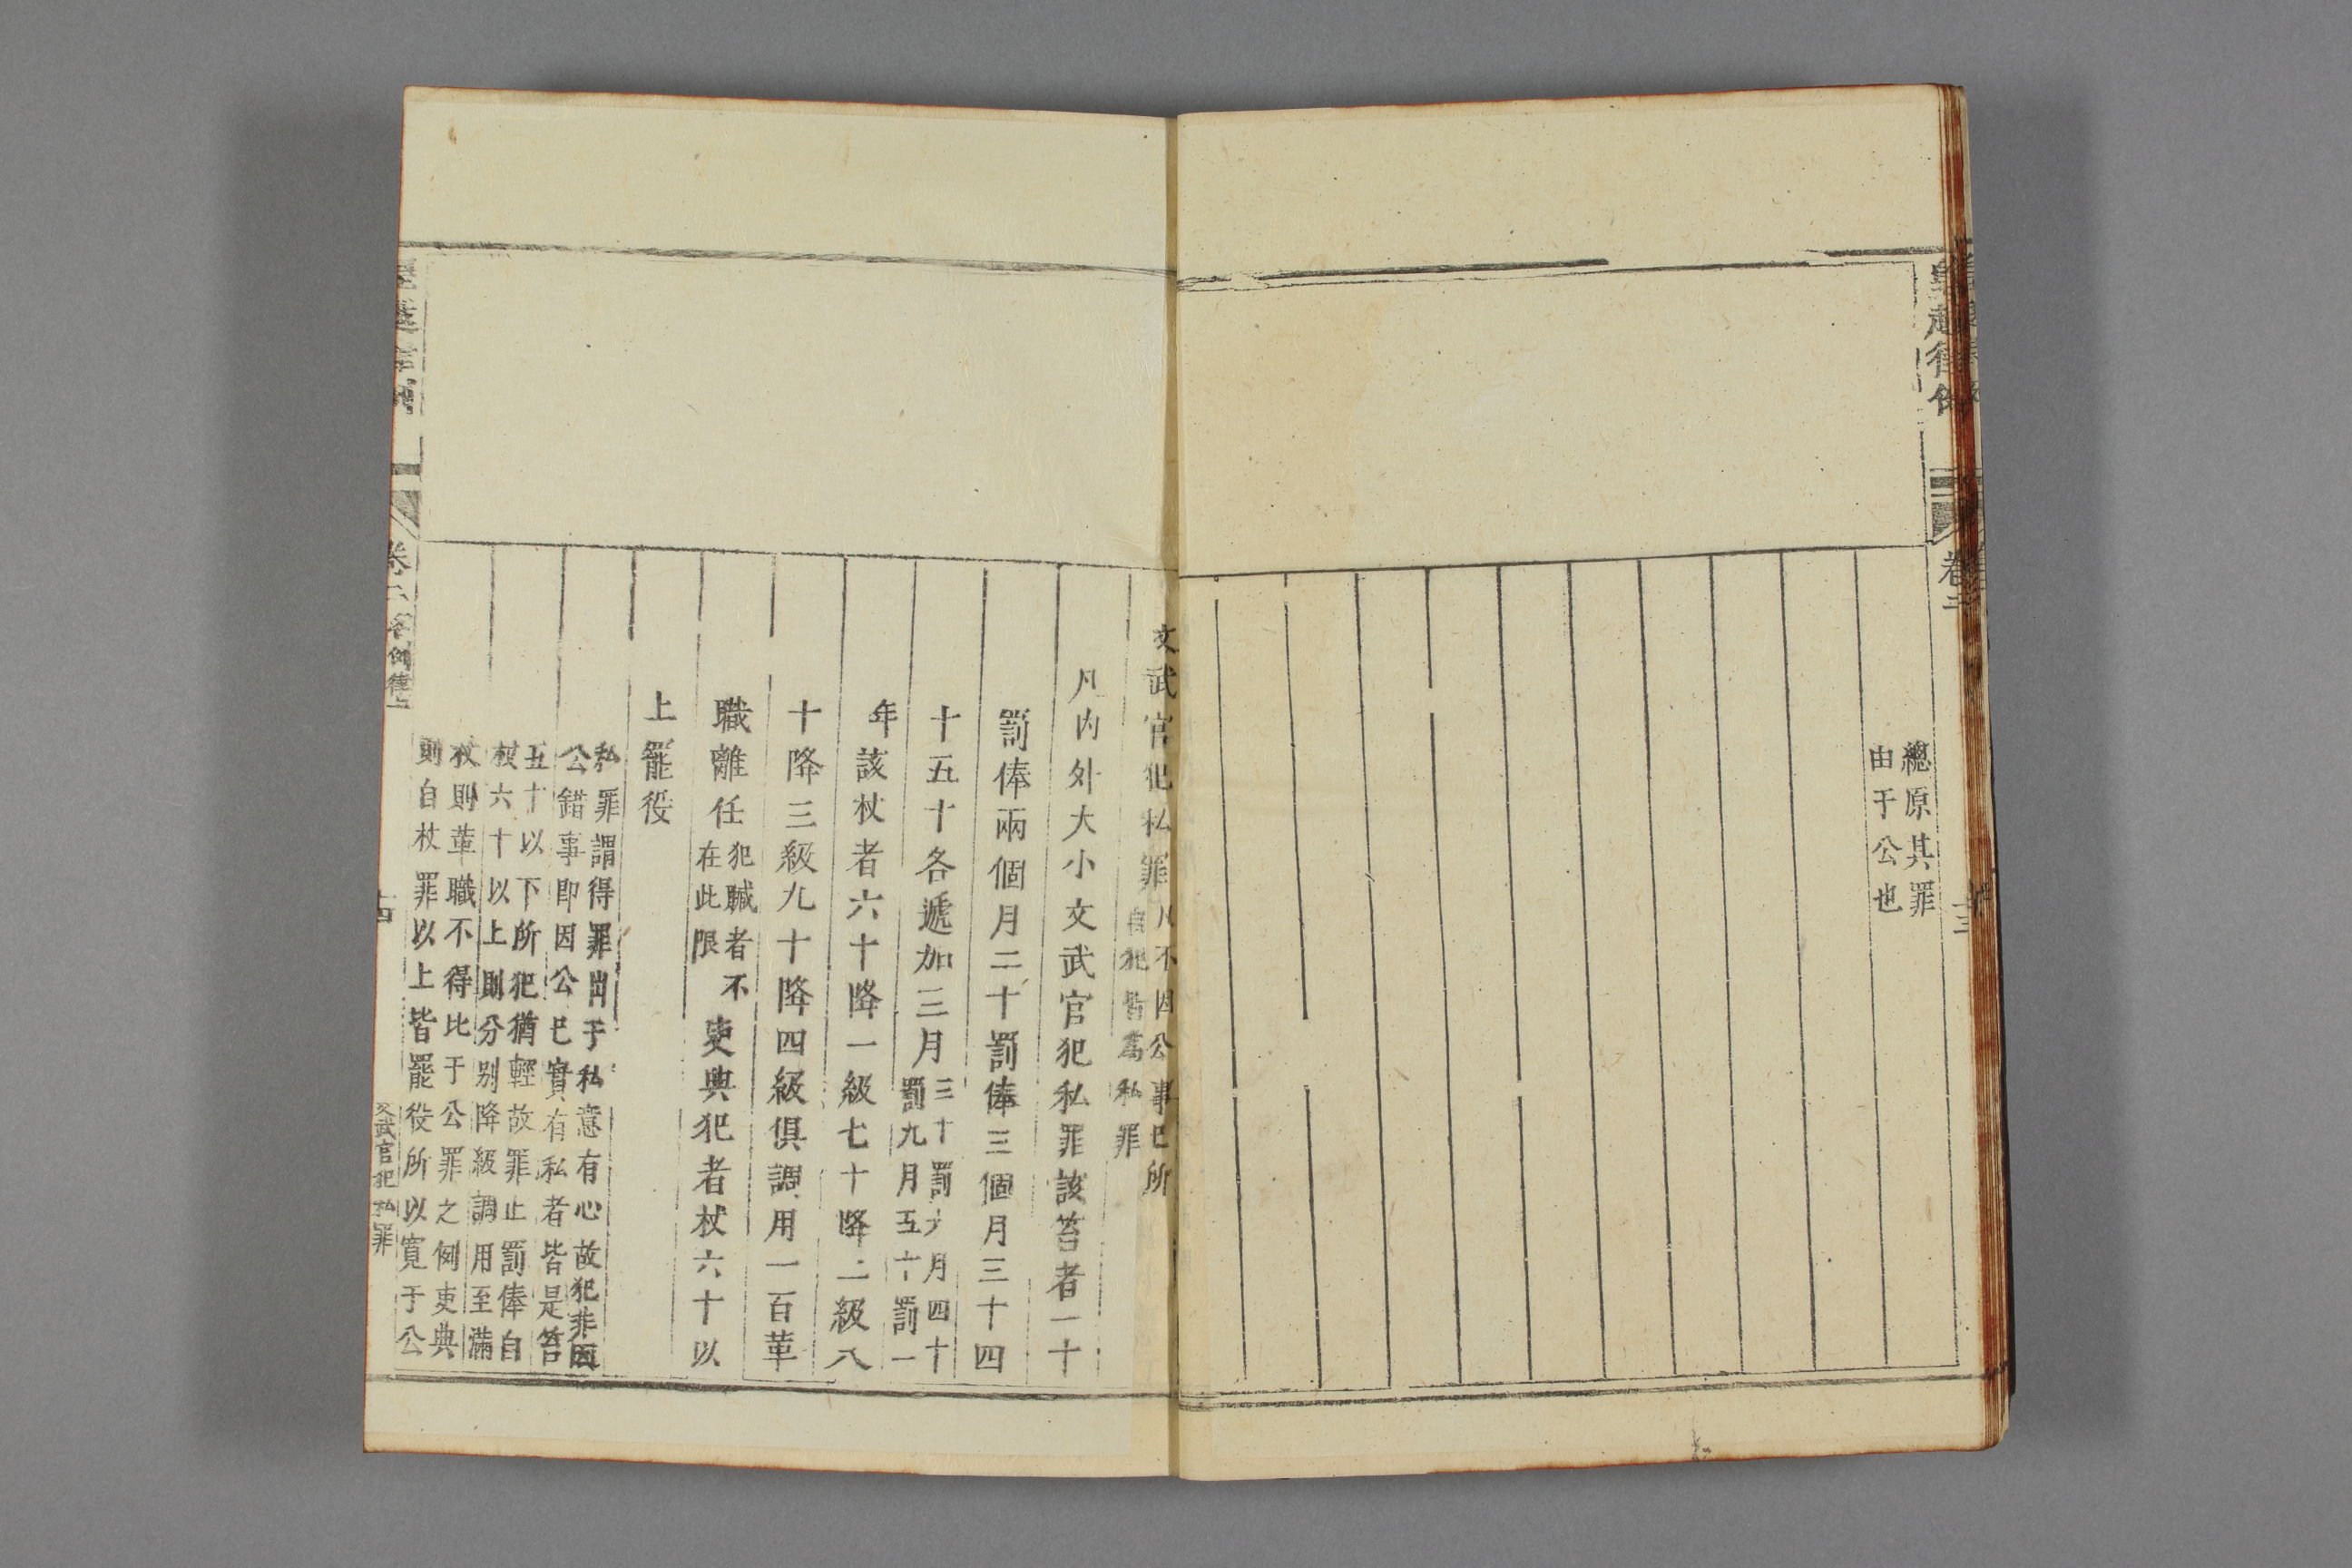 總原其罪
由于公也
卷二
文武官犯私罪凡不因公事已所
自犯皆為私罪
凡內外大小文武官犯私罪該笞者一十
罰俸兩個月二十罰俸三個月三十四
十五十各遞加三月三十罰六月四十
罰九月五十罰一
年該杖者六十降一級七十降二級八
十降三級九十降四級俱調用一百革
職離任犯贓者不
在此限吏典犯者杖六十以
上罷役
私罪謂得罪出于私意有心故犯非因
公錯事即因公已實有私者皆是笞
五十以下所犯猶輕故罪止罰俸自
杖六十以上則分別降級調用至滿
杖則革職不得比于公罪之例吏典
則自杖罪以上皆罷役所以寬于公
名例律上
十四
文武官犯私罪